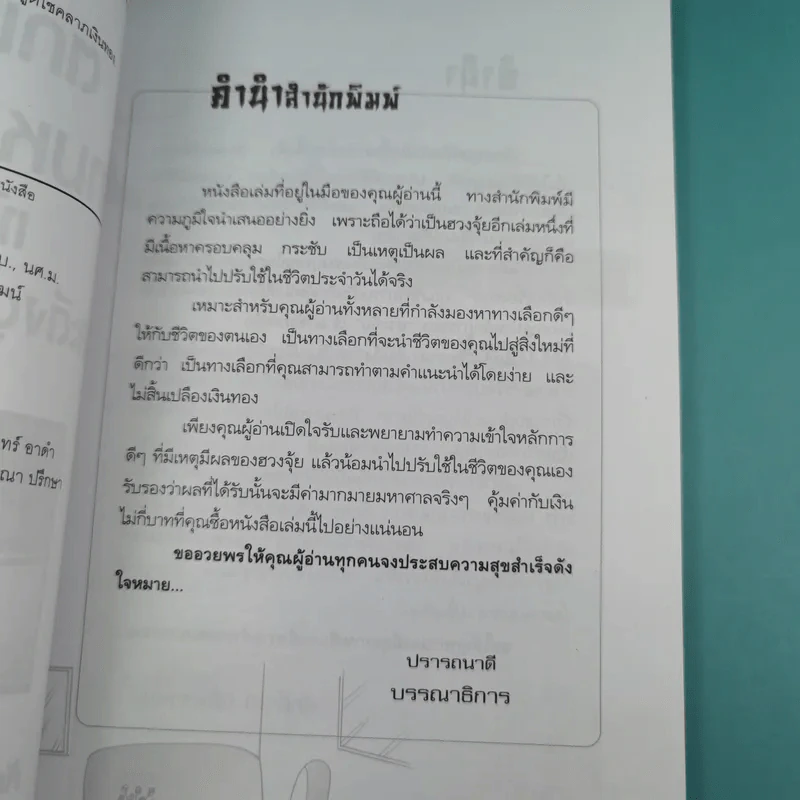 นังสือ
บ., นศ.ม.
มน์
ทร์ อาดำ
ณา ปรึกษา
คำนำสำนักพิมพ์
หนังสือเล่มที่อยู่ในมือของคุณผู้อ่านนี้ ทางสำนักพิมพ์มี
ความภูมิใจนำเสนออย่างยิ่ง เพราะถือได้ว่าเป็นฮวงจุ้ยอีกเล่มหนึ่งที่
มีเนื้อหาครอบคลุม กระชับ เป็นเหตุเป็นผล และที่สำคัญก็คือ
สามารถนำไปปรับใช้ในชีวิตประจำวันได้จริง
เหมาะสำหรับคุณผู้อ่านทั้งหลายที่กำลังมองหาทางเลือกดีๆ
ให้กับชีวิตของตนเอง เป็นทางเลือกที่จะนำชีวิตของคุณไปสู่สิ่งใหม่ที่
ดีกว่า เป็นทางเลือกที่คุณสามารถทำตามคำแนะนำได้โดยง่าย และ
ไม่สิ้นเปลืองเงินทอง
เพียงคุณผู้อ่านเปิดใจรับและพยายามทำความเข้าใจหลักการ
ดีๆ ที่มีเหตุมีผลของฮวงจุ้ย แล้วน้อมนำไปปรับใช้ในชีวิตของคุณเอง
รับรองว่าผลที่ได้รับนั้นจะมีค่ามากมายมหาศาลจริงๆ คุ้มค่ากับเงิน
ไม่กี่บาทที่คุณซื้อหนังสือเล่มนี้ไปอย่างแน่นอน
ขออวยพรให้คุณผู้อ่านทุกคนจงประสบความสุขสำเร็จดัง
ใจหมาย...
ปรารถนาดี
บรรณาธิการ